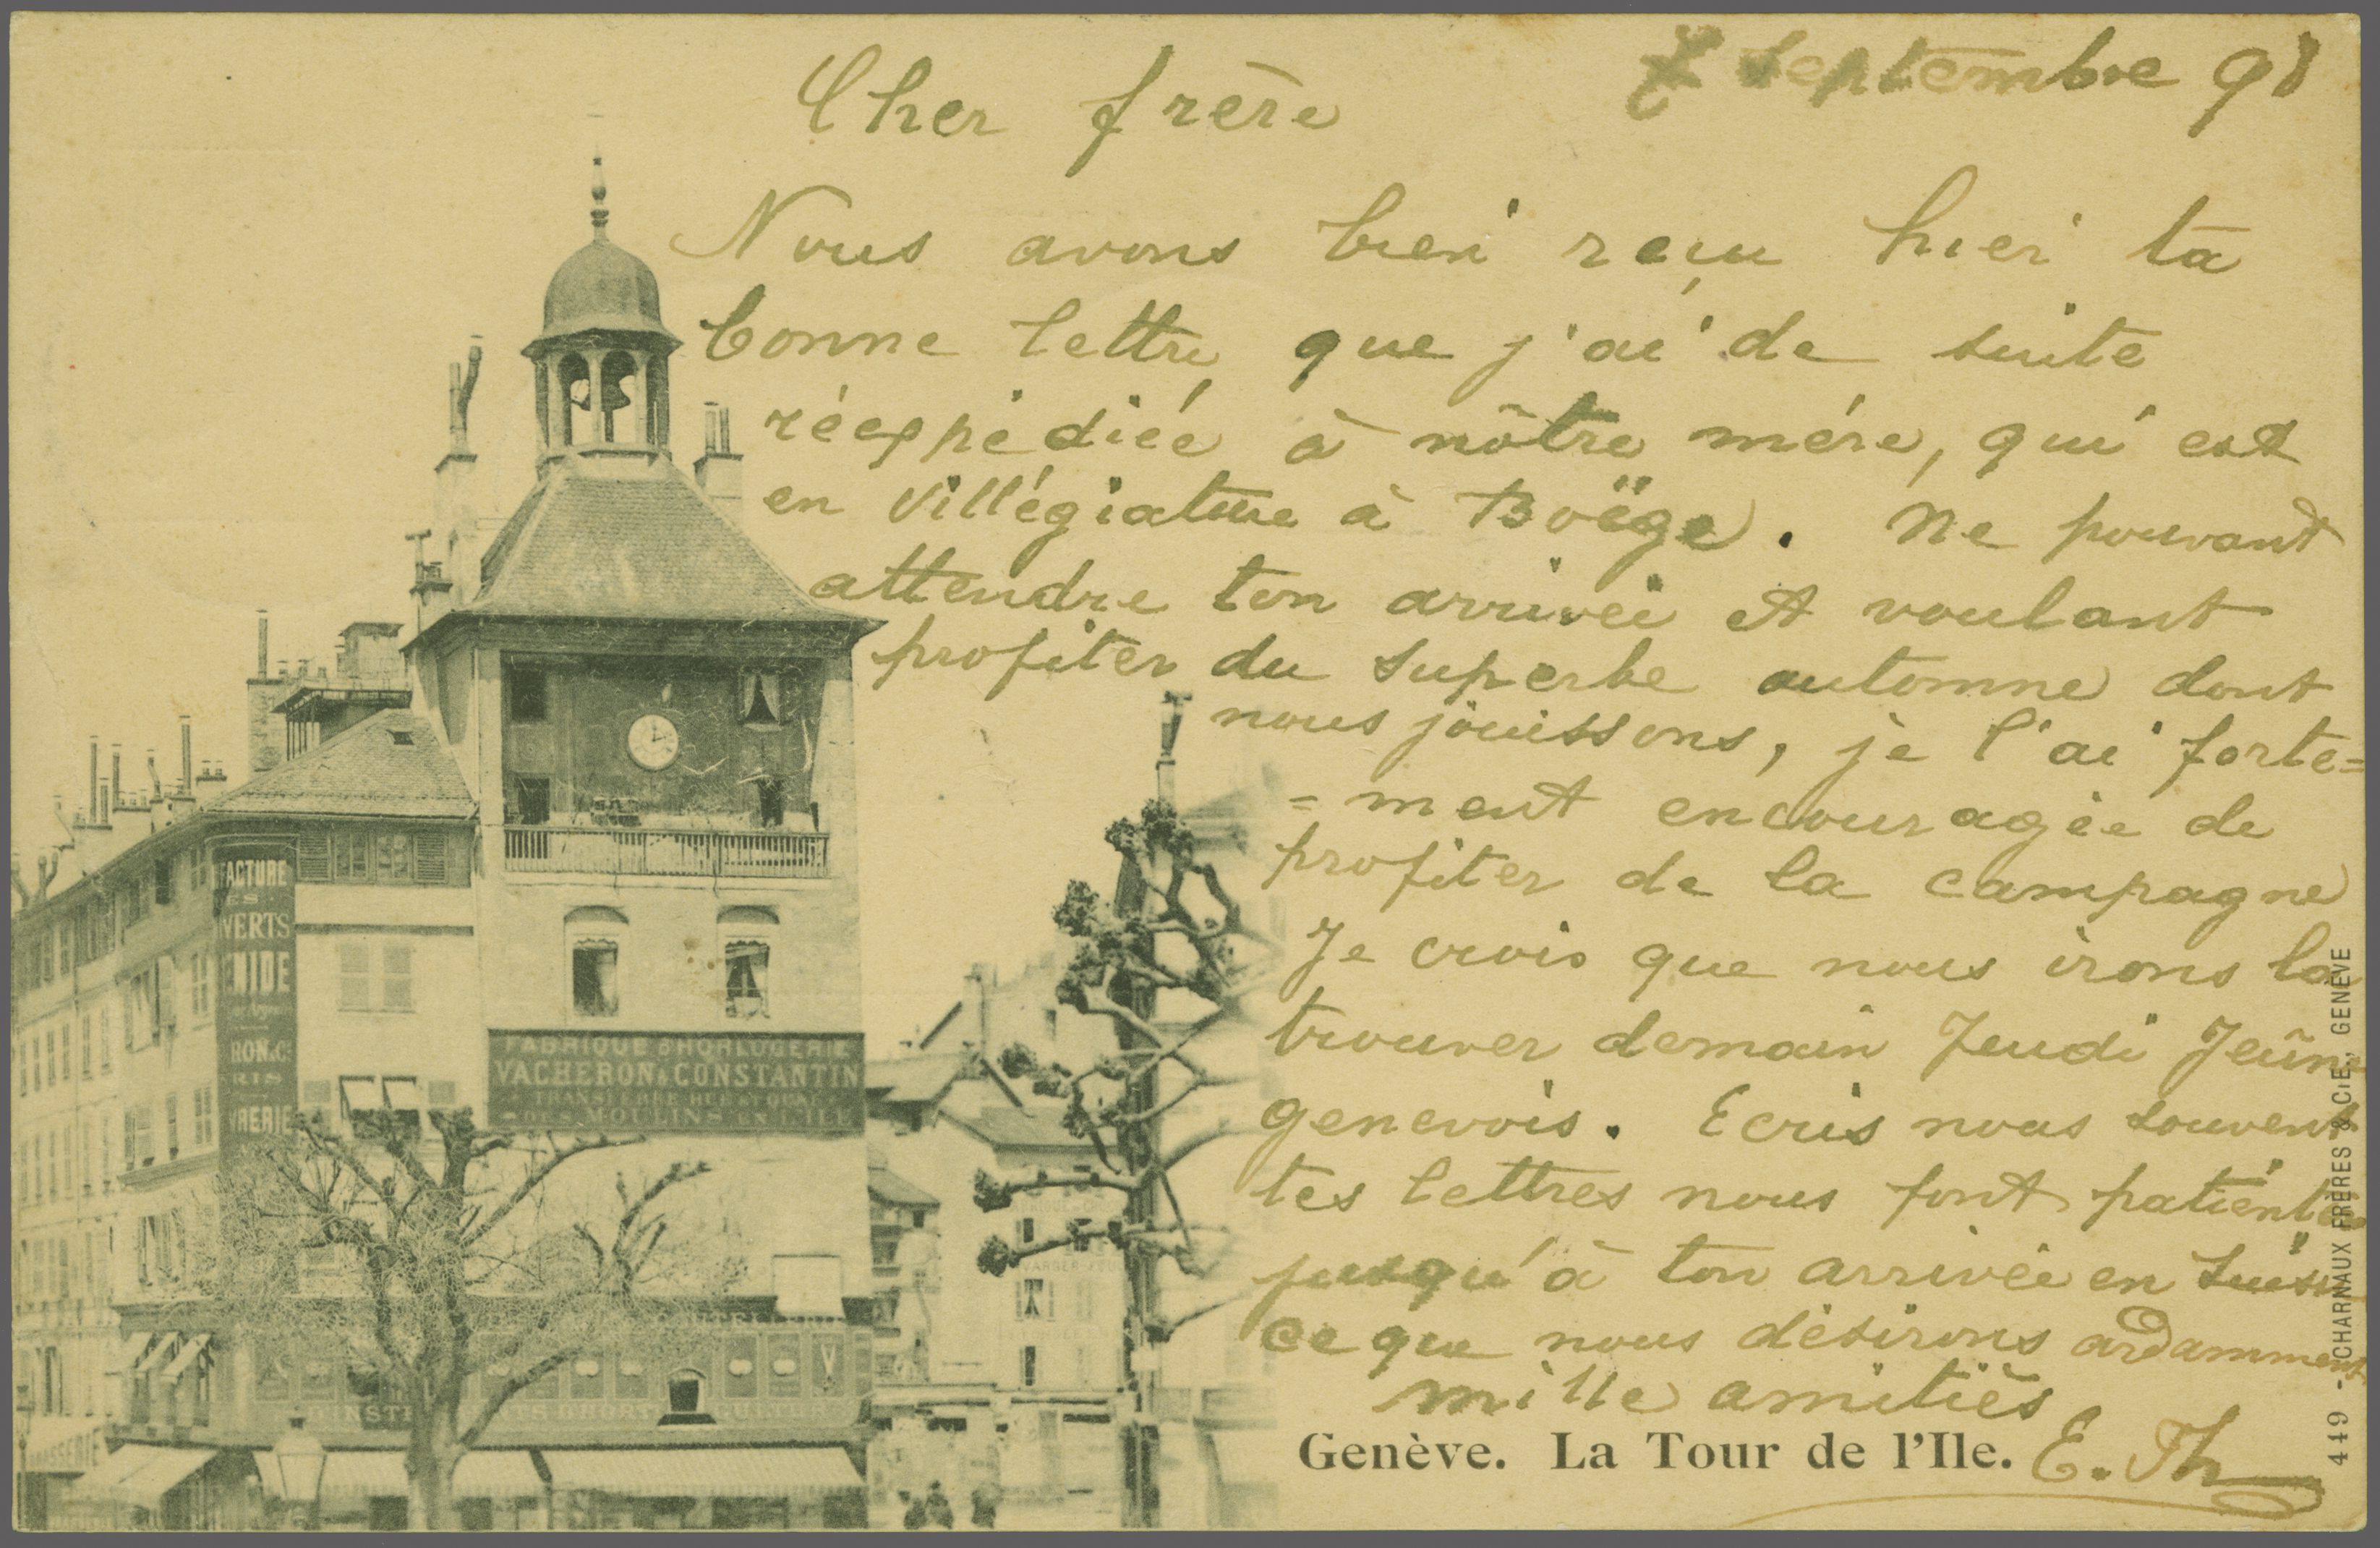 7 septembre 98
Cher frère
Nous avons bien reçu hier ta
bonne lettre que j'ai de suite
réexpédiée à nôtre mére, qui est
en villégiature à Boëge. Ne pouvant
attendre ton arrivée et voulant
profiter du superbe automne dont
nous jouissons, je l'ai forte=
=ment encouragée de
profiter de la campagne
Je crois que nous irons la
trouver demain Jeudi Jeûne
genevois. Ecris nous souvent
tes lettres nous font patienter
jusqu'à ton arrivée en Suisse
ce que nous désirons ardamment
mille amitiés
E. Th
Genève. La Tour de l'Ile.
449 - CHARNAUX FRÈRES & CIE, GENÈVE
FACTURE
ES
VERTS
NIDE
RON & Cie
RIS
VRERIE
FABRIQUE D'HORLOGERIE
VACHERON & CONSTANTIN
TRANSFEREE RUE ET QUAI
DES MOULINS EN L'ILE
BRASSERIE